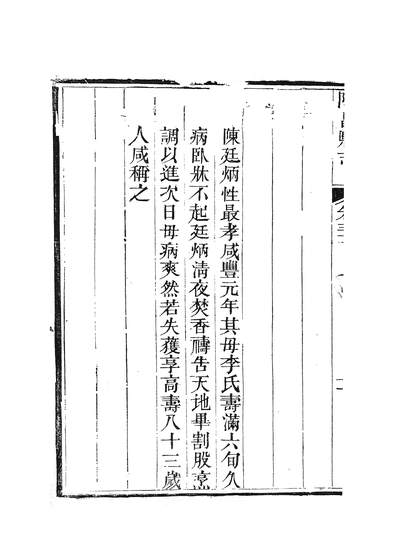 陳廷炳性最孝咸豐元年其毋李氏壽滿六旬久
病臥牀不起廷炳淸夜焚香禱告天地畢割股烹
調以進次日毋病爽然若失獲享高壽八十三歲
人咸稱之